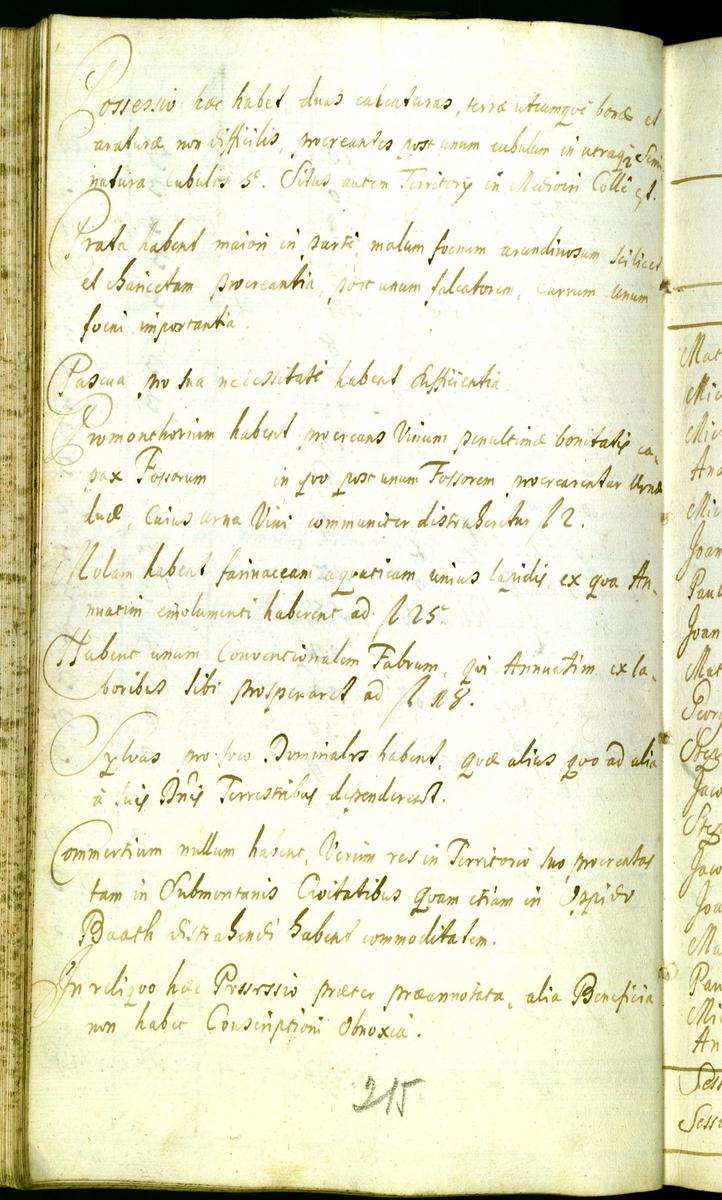 Possessio hæc habet duas calcaturas, terræ utcumque bonæ et
araturæ non difficilis, procreantes post unum cubulum in utraq3 Semi-
natura Cubulos 5. Situs autem Territorÿ in Mediocri Colle est.
Prata habent maiori in parte, malum foenum arundinosum scilicet
et charicetam procreantia, post unum falcatorem, Currum unum
foeni importantia.
Pascua pro sua necessitate habent sufficientia
Promonthorium habent procreans Vinum penultimæ bonitatis ca-
pax Fossorum in quo post unum Fossorem procrearentur Urnæ
duæ, Cuius urna Vini communiter distraheretur f 2.
Molam habent farinaceam aquaticam unius lapidis ex qua An-
nuatim emolumenti haberent ad f 25.
Habent unum Conventionalem Fabrum, qui Annuatim ex la-
boribus sibi prosperaret ad f 18.
Sylvas pro foco Dominales habent, quæ alias quo ad alia
à suis Dnis Terrestribus dependerent.
Commertium nullum habent, Verum res in Territorio suo procreatas
tam in Submontanis Civitatibus quam etiam in Oppido
Baath distrahendi habent commoditatem.
In reliquo hæc Possessio præter præannotata, alia Beneficia
non habet Conscriptioni obnoxia.
215
Mat
Mic
Mic
And
Mic
Joan
Paul
Joan
Mat
Geor
Step
Jac
Step
Jac
Joa
Ma
Pau
Mic
An
Sess
Sess